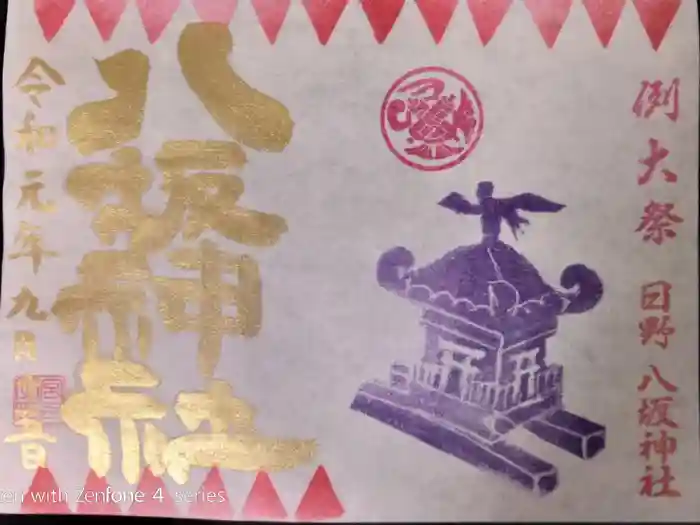 例大祭 日野八坂神社
八坂神社
令和元年九月吉日
with Zenfone 4 series